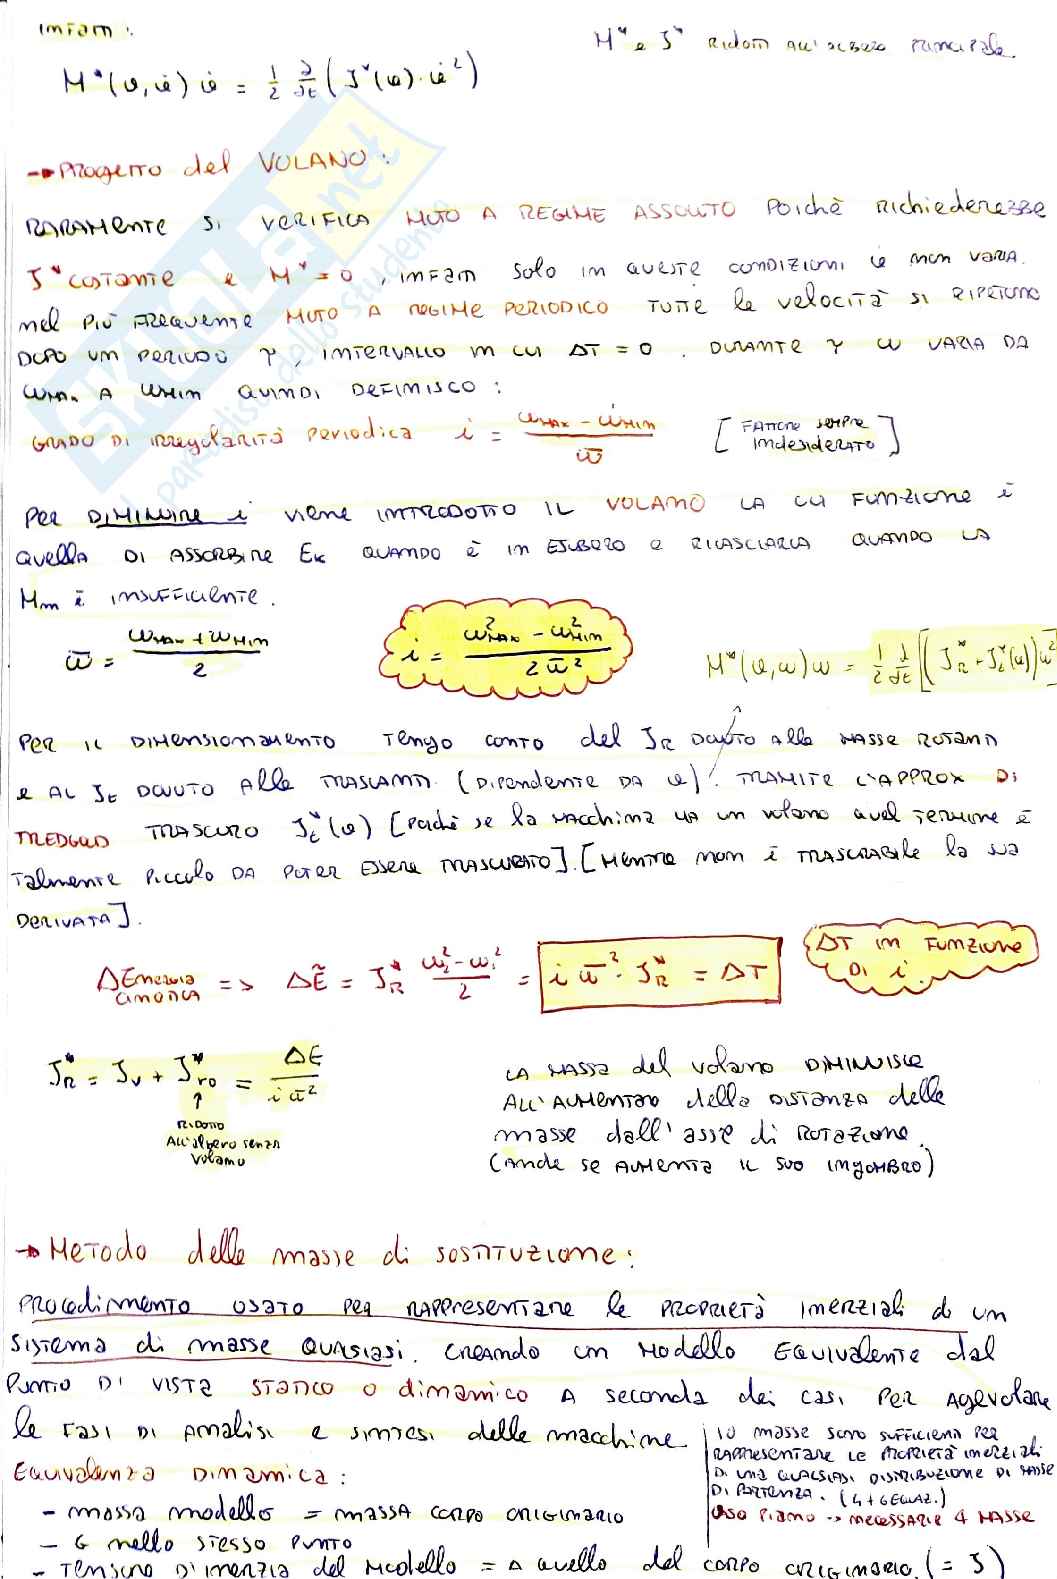 infatti :
M* e J* ridotti all'albero principale.
M*(φ, φ̇) φ̇ = 1/2 ∂/∂t (J*(φ) · φ̇²)
→ PROGETTO del VOLANO :
RARAMENTE SI VERIFICA MOTO A REGIME ASSOLUTO POICHÈ RICHIEDEREBBE
J* COSTANTE e M* = 0 , infatti solo in queste condizioni φ̇ non varia.
nel PIÙ FREQUENTE MOTO A REGIME PERIODICO TUTTE le velocità SI RIPETONO
DOPO UN PERIODO γ, INTERVALLO IN CUI ΔT = 0 . DURANTE γ ω VARIA DA
ωMAX A ωMIN QUINDI DEFINISCO :
GRADO DI irregolarità Periodica i = (ωMAX - ωMIN) / ω̄ [FATTORE SEMPRE
indesiderato]
PER DIMINUIRE i viene INTRODOTTO IL VOLANO LA CUI FUNZIONE È
quella DI ASSORBIRE Ek QUANDO È IN ESUBERO e RILASCIARLA QUANDO LA
Mm È INSUFFICIENTE.
ω̄ = (ωMAX + ωMIN) / 2
i = (ω²MAX - ω²MIN) / 2ω̄²
M*(φ,ω)ω = 1/2 ∂/∂t [(J*R + J*t(φ))ω²]
PER IL DIMENSIONAMENTO TENGO CONTO del JR DOVUTO Alle MASSE ROTANTI
e AL Jt DOVUTO Alle TRASLANTI (Dipendente DA φ). TRAMITE L'APPROX DI
TREDGOLD TRASCURO J*t(φ) [Poichè se la macchina ha un volano quel termine è
Talmente Piccolo DA POTER ESSERE TRASCURATO]. [MENTRE non È TRASCURABILE la sua
DERIVATA].
ΔEnergia
cinetica => ΔẼ = J*R (ω₂² - ω₁²)/2 = i ω̄² · J*R = ΔT
ΔT in FUNZIONE
DI i
J*R = Jv + J*ro = ΔE / i ω̄²
RIDOTTO
All'albero senza
volano
LA MASSA del volano DIMINUISCE
ALL'AUMENTARE della DISTANZA delle
masse dall'asse di ROTAZIONE.
(anche se AUMENTA IL SUO INGOMBRO)
→ METODO delle masse di SOSTITUZIONE :
PROCEDIMENTO USATO PER RAPPRESENTARE le PROPRIETÀ inerziali di un
SISTEMA di masse QUALSIASI. CREANDO un Modello EQUIVALENTE dal
PUNTO DI VISTA STATICO O dinamico A seconda dei casi PER AGEVOLARE
le FASI DI Analisi e sintesi delle macchine
EQUIVALENZA DINAMICA :
10 masse sono sufficienti PER
RAPPRESENTARE LE PROPRIETÀ inerziali
DI UNA QUALSIASI DISTRIBUZIONE DI MASSE
DI PARTENZA. (4+6 EQUAZ.)
CASO Piano → necessarie 4 MASSE
- massa modello = MASSA CORPO ORIGINARIO
- G nello STESSO PUNTO
- TENSORE D'INERZIA del Modello = A quello del CORPO ORIGINARIO. (= J)
SKUOLA.net
il paradiso dello studente